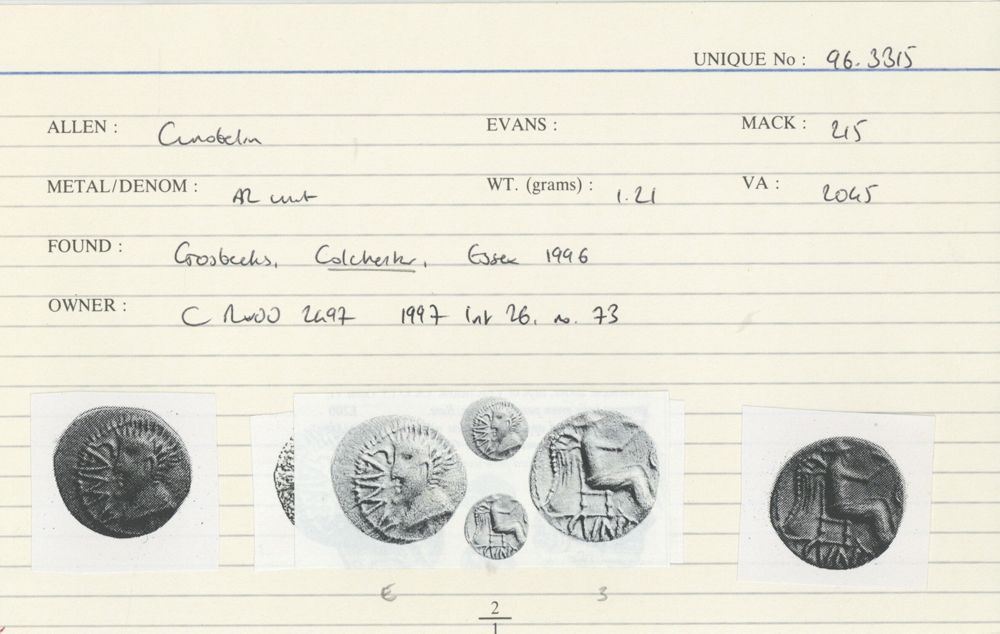 UNIQUE No : 96.3315
ALLEN : Cunobelin EVANS : MACK : 215
METAL/DENOM : AR unit WT. (grams) : 1.21 VA : 2045
FOUND : Gosbecks, Colchester, Essex 1996
OWNER : C Rudd 2497 1997 list 26. no. 73
E 3
2
1